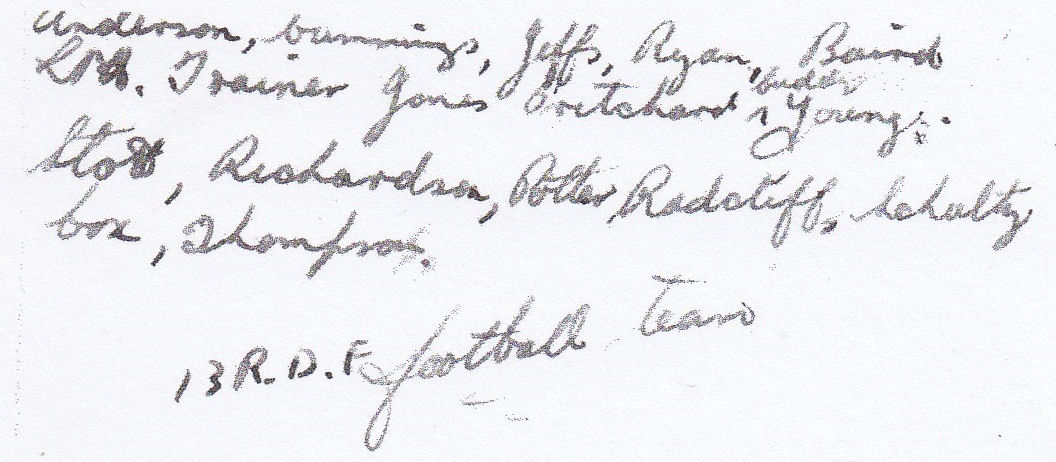 Anderson, Cummings, Jeffs, Ryan, Baird
Trainer Jones Pritchard, Young.
Stott, Richardson, Potter, Radcliff, Schultz
Cox, Thompson.
13 R.D.F football team